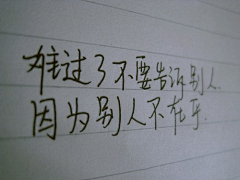 难过了不要告诉别人.
因为别人不在乎.